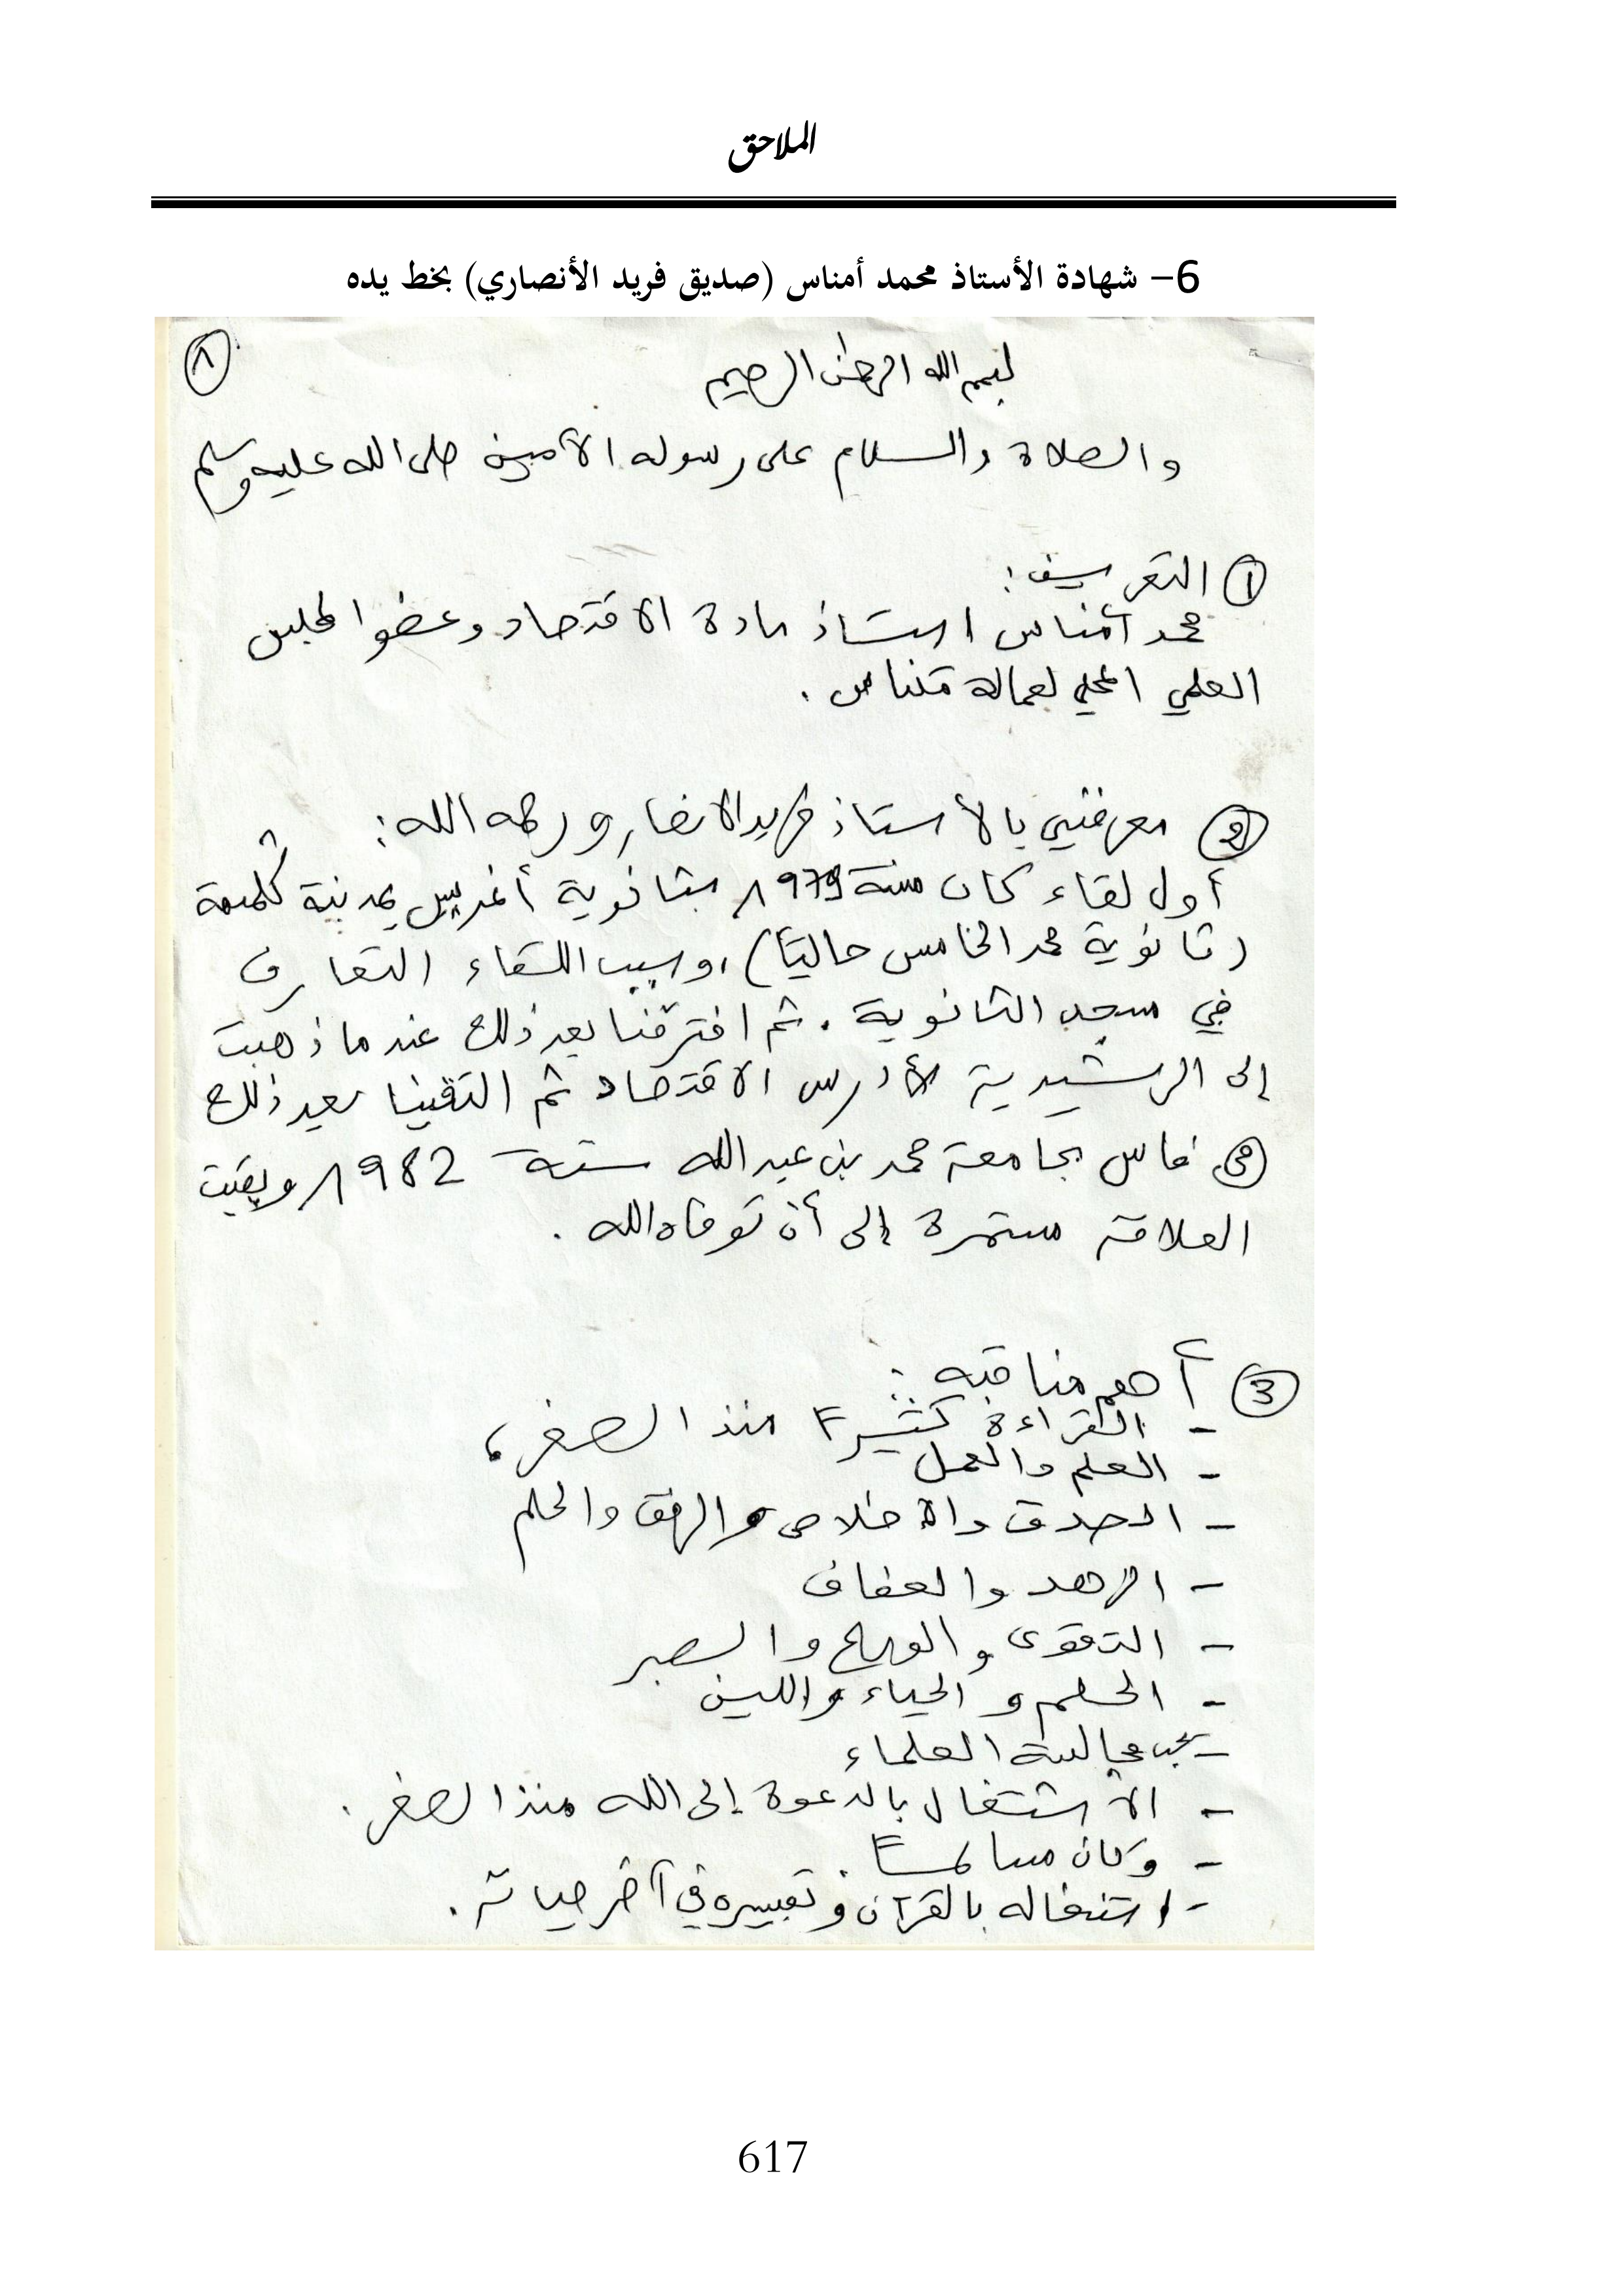 الملاحق
6- شهادة الأستاذ محمد أمناس (صديق فريد الأنصاري) بخط يده
1
بسم الله الرحمن الرحيم
والصلاة والسلام على رسوله الأمين صلى الله عليه وسلم
1 التعريف:
محمد أمناس استاذ مادة الاقتصاد وعضو المجلس
العلمي المحلي لعمالة مكناس.
2 معرفتي بالأستاذ فريد الانصاري رحمه الله:
أول لقاء كان سنة 1979 بثانوية أغريس بمدينة كلميمة
(ثانوية محمد الخامس حاليا)، وسبب اللقاء التعارف
في مسجد الثانوية. ثم افترقنا بعد ذلك عندما ذهبت
إلى الرشيدية لأدرس الاقتصاد ثم التقينا بعد ذلك
في فاس بجامعة محمد بن عبد الله سنة 1982 وبقيت
العلاقة مستمرة إلى أن توفاه الله.
3 أهم مناقبه:
- القراءة كثيرا منذ الصغر،
- العلم والعمل
- الصدق والاخلاص والرفق والحلم
- الزهد والعفاف
- التقوى والورع والصبر
- الحلم و الحياء واللين
- يحب مجالسة العلماء
- الاشتغال بالدعوة إلى الله منذ الصغر.
- وكان مسالما.
- اشتغاله بالقرآن و في آخر حياته.
617